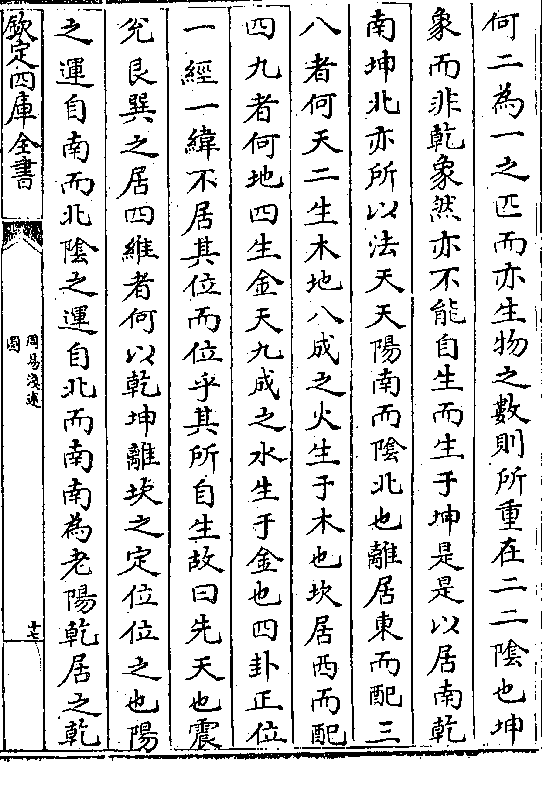 何二為一之匹而亦生物之數則所重在二二陰也坤
象而非乾象然亦不能自生而生于坤是以居南乾
南坤北亦所以法天天陽南而陰北也離居東而配三
八者何天二生木地八成之火生于木也坎居西而配
四九者何地四生金天九成之水生于金也四卦正位
一經一緯不居其位而位乎其所自生故曰先天也震
兊艮巽之居四維者何以乾坤離坎之定位位之也陽
之運自南而北陰之運自北而南南為老陽乾居之乾
欽定四庫全書
周易淺述
圖
十七